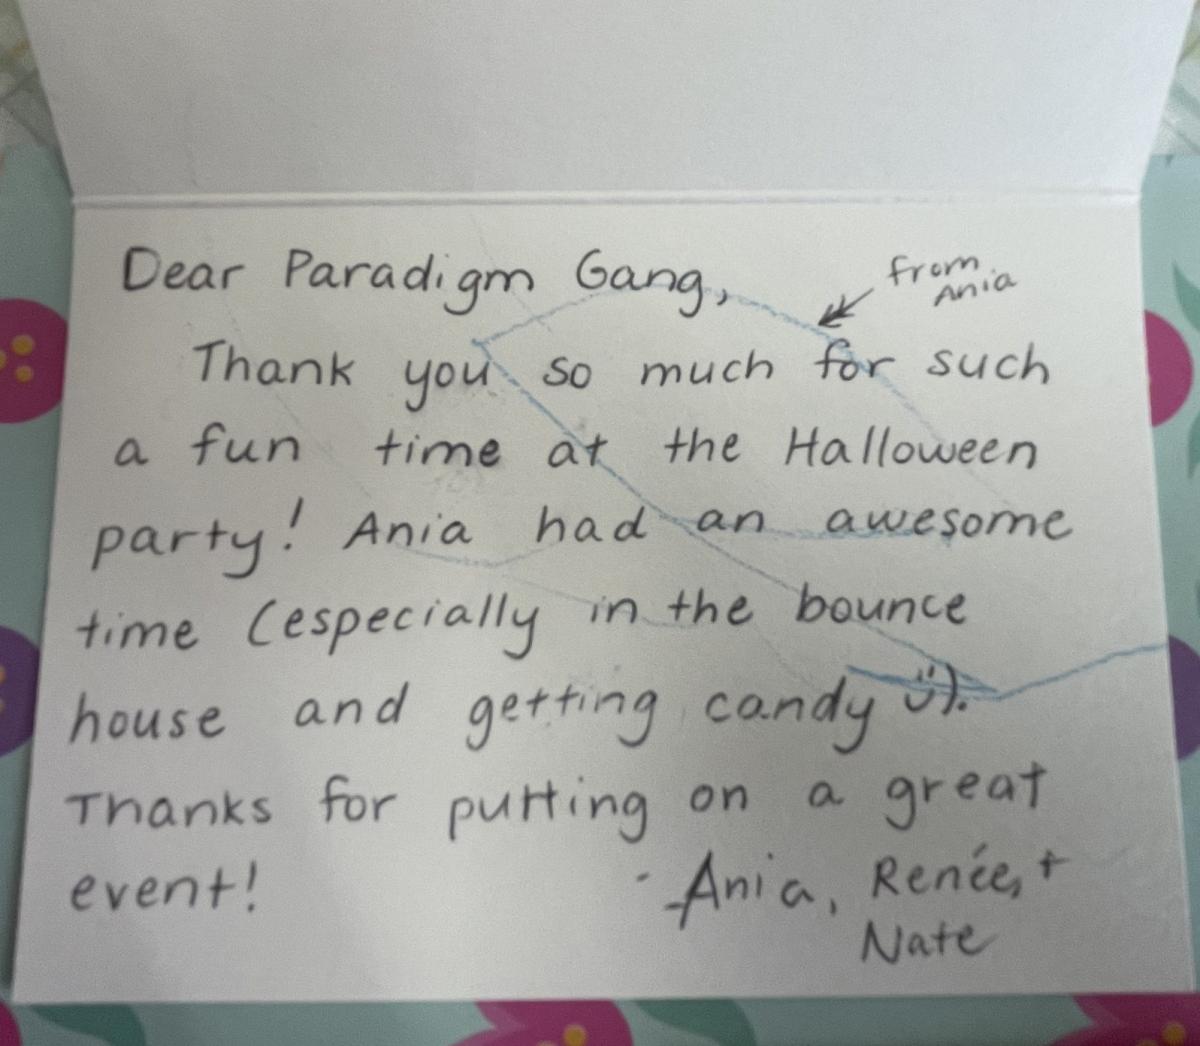 Dear Paradigm Gang,
from
Ania
Thank you so much for such
a fun time at the Halloween
party! Ania had an awesome
time (especially in the bounce
house and getting candy ü).
Thanks for putting on a great
event!
- Ania, Renée, +
Nate